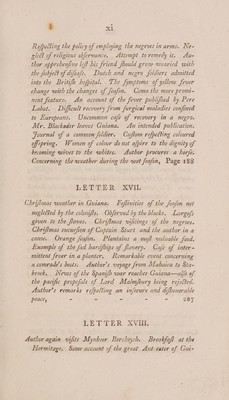 xi
Respecting the policy of employing the negroes in arms. Ne-
glect of religious observance. Attempt to remedy it. Au-
thor apprehensive lest his friend should grow wearied with
the subject of disease. Dutch and negro soldiers admitted
into the British hospital. The symptoms of yellow fever
change with the changes of season. Coma the more promi-
nent feature. An account of the fever published by Pere
Labat. Difficult recovery from surgical maladies confined
to Europeans. Uncommon case of recovery in a negro.
Mr. Blackader leaves Guiana. An intended publication.
Journal of a common soldier. Custom respecting coloured
offspring. Women of colour do not aspire to the dignity of
becoming wives to the whites. Author procures a horse.
Concerning the weather during the wet season, Page 188
LETTER XVII.
Christmas weather in Guiana. Festivities of the season not
neglected by the colonists. Observed by the blacks. Largess
given to the slaves. Christmas visitings of the negroes.
Christmas excursion of Captain Start and the author in a
canoe. Orange season. Plantains a most valuable food.
Example of the sad hardships of slavery. Case of inter-
mittent fever in a planter. Remarkable event concerning
a comrade's boots. Author's voyage from Mahaica to Sta-
broek. News of the Spanish war reaches Guiana—also of
the pacific proposals of Lord Malmsbury being rejected.
Author's remarks respecting an insecure and dishonorable
peace, - - - - - - 207
LETTER XVIII.
Author again visits Mynheer Bercheych. Breakfast at the
Hermitage. Some account of the great Ant eater of Gui-